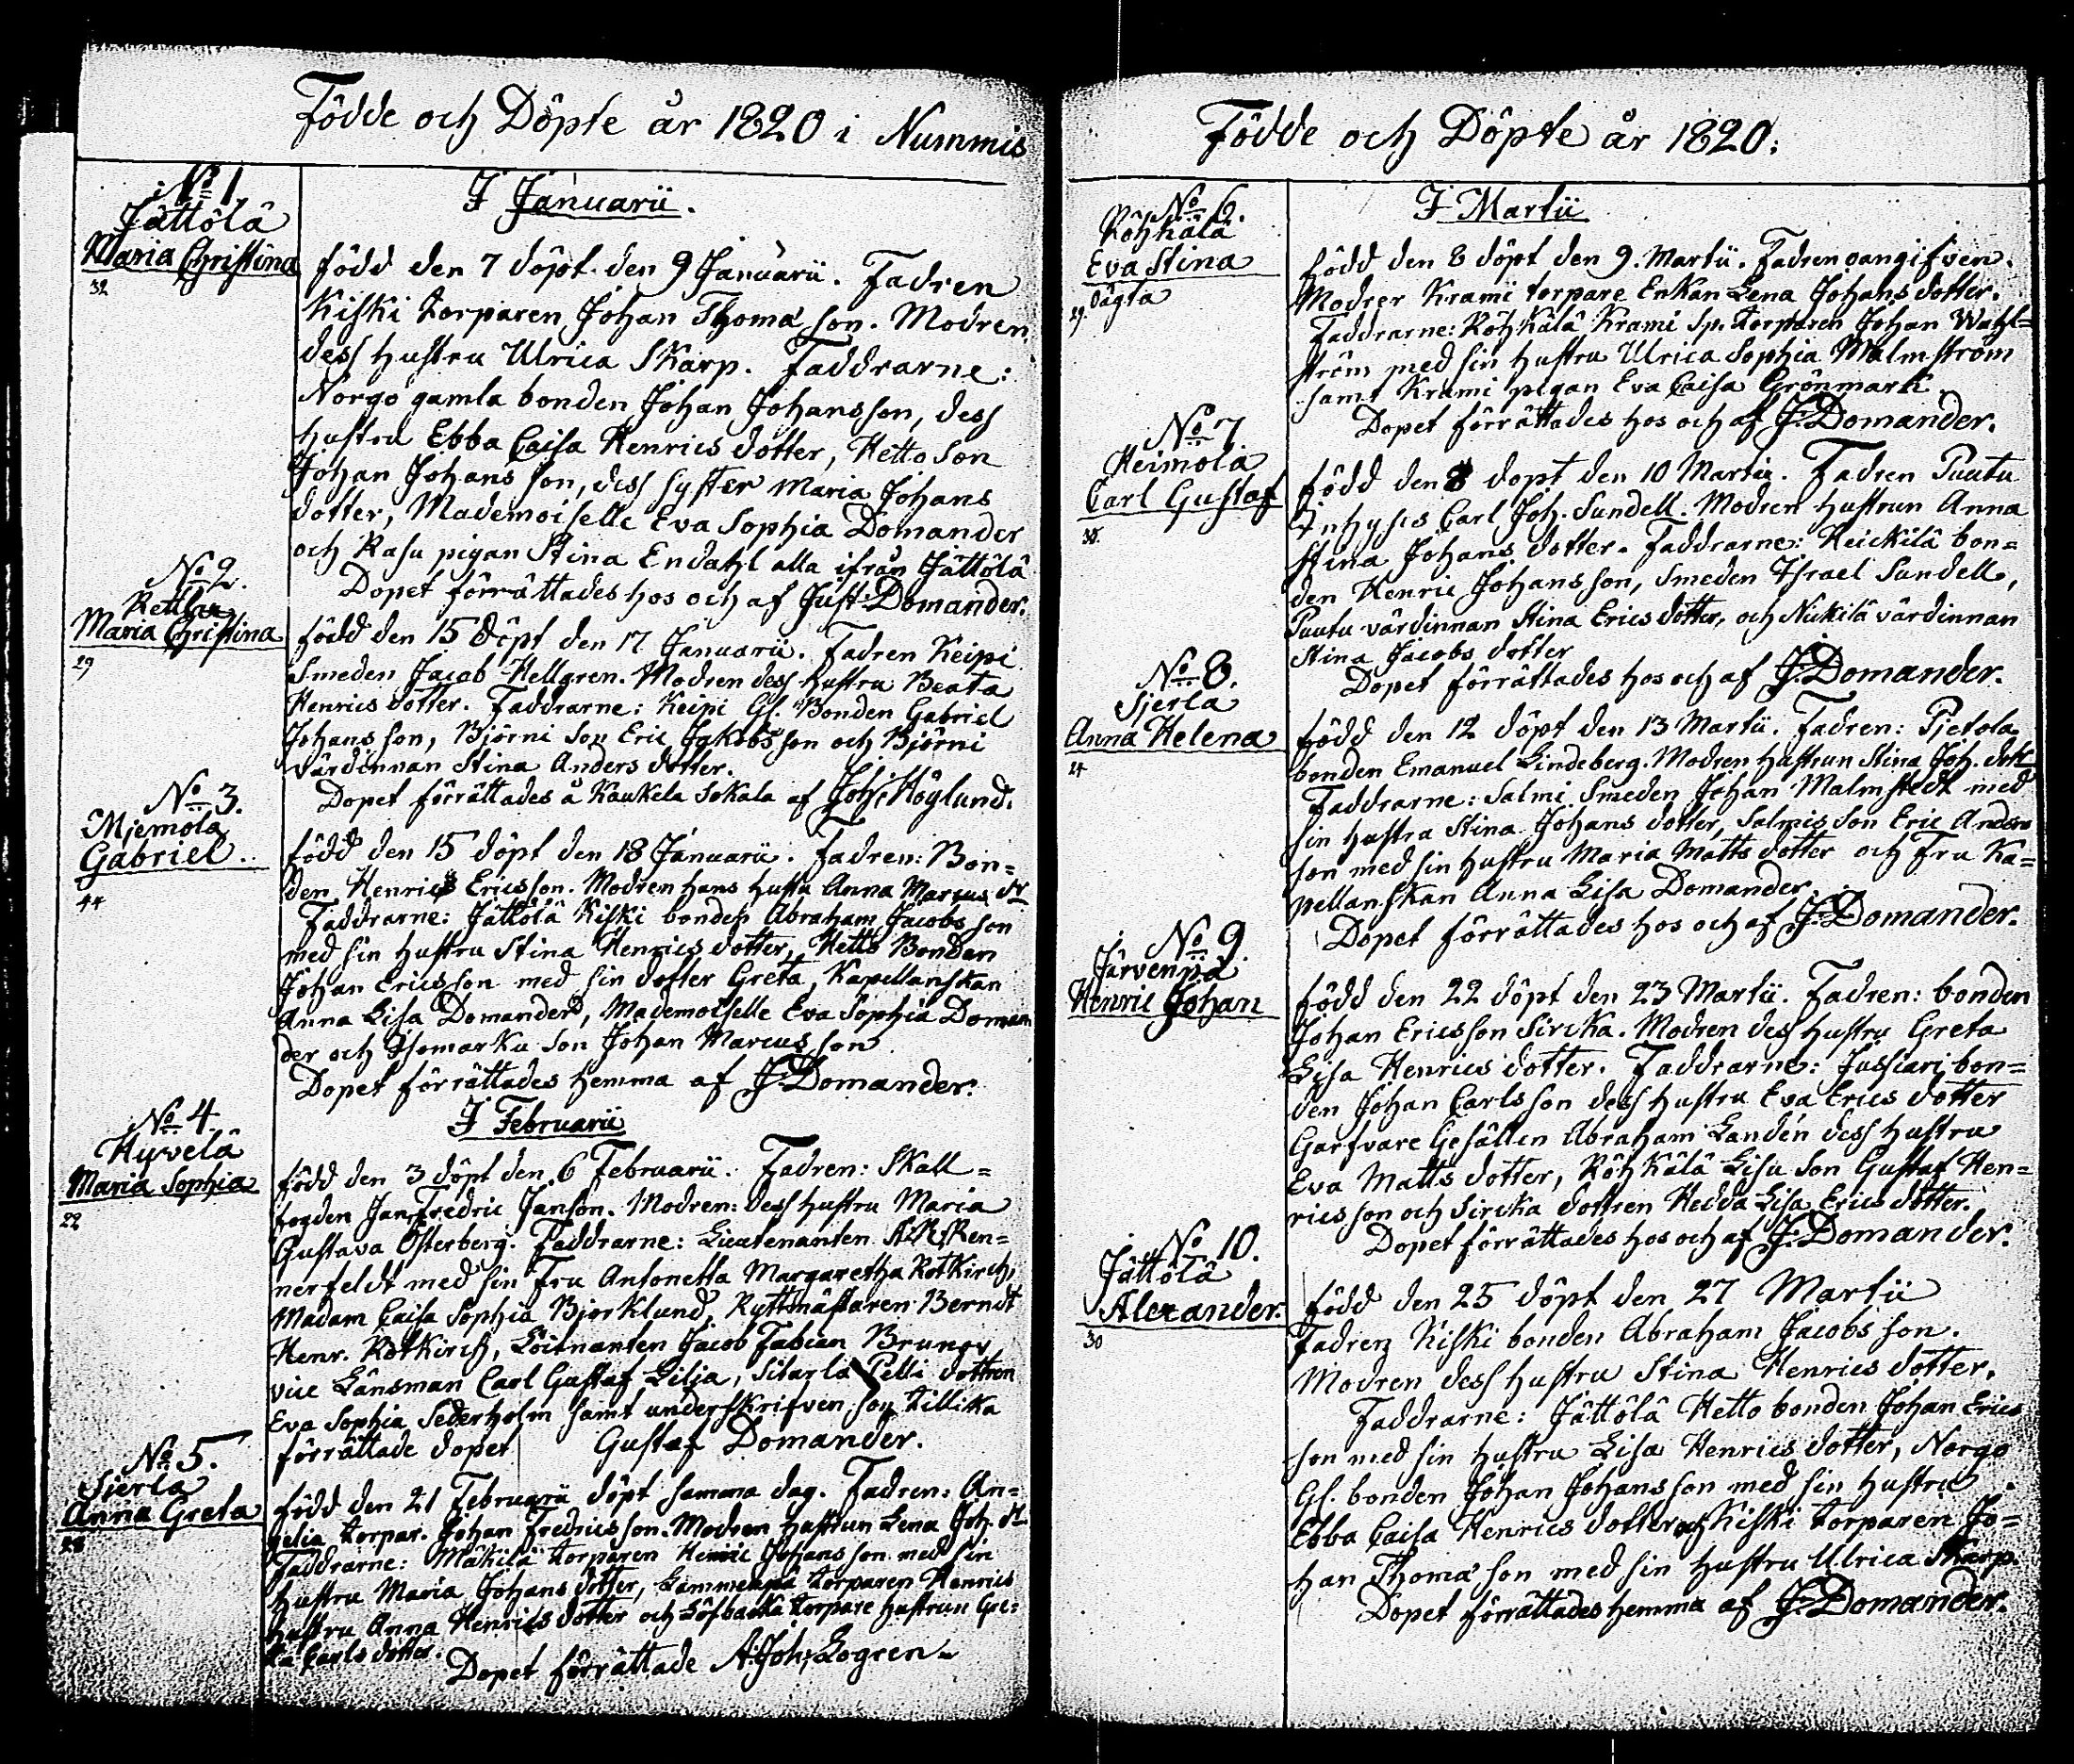 Födde och Döpte år 1820 i Nummis
No 1
Jättölä
Maria Christina
32
I Januarii.
född den 7 döpt den 9 Januarii. Fadren
Kiski torparen Johan Thomæ son. Modren
dess hustru Ulrica Skarp. Faddrarne:
Norgo gamla bonden Johan Johansson, dess
hustru Ebba Caisa Henrics dotter, Hetto son
Johan Johans son, dess syster Maria Johans
dotter, Mademoiselle Eva Sophia Domander
och Rasu pigan Stina Endahl alla ifrån Jättölä
Dopet förrättades hos och af Just: Domander.
No 2.
Maria Christina
29
född den 15 döpt den 17 Januarii. Fadren Keipi
Smeden Jacob Hellgren. Modren dess hustru Beata
Henrics dotter. Faddrarne: Keipi Gl. Bonden Gabriel
Johans son, Björni son Eric Jakobsson och Björni
värdinnan Stina Anders dotter.
Dopet förrättades å Kaukela Sokala af Joh: Höglund.
No 3.
Mjemola
Gabriel.
44
född den 15 döpt den 18 Januarii. Fadren: Bon=
den Henrics Ericsson. Modren hans hustru Anna Marcus dr
Faddrarne: Jättölä Kiski bonden Abraham Jacobs son
med sin hustru Stina Henrics dotter, Hetto Bonden
Johan Ericsson med sin dotter Greta, Kapellanskan
Anna Lisa Domander, Mademoiselle Eva Sophia Doman
der och Isomarku son Johan Marcus son
Dopet förrättades hemma af J. Domander.
No 4.
Hyvelä
Maria Sophia
22
I Februarii
född den 3 döpt den 6 Februarii. Fadren: Skall=
fogden Jan Fredric Janson. Modren: dess hustru Maria
Gustava Österberg. Faddrarne: Lieutenanten Ren=
nerfeldt med sin Fru Antonetta Margaretha Rotkirch,
Madam Caisa Sophia Björklund, Ryttmästaren Berndt
Henr. Rotkirch, Löitnanten Jacob Fabian Brunov
vice Länsman Carl Gustaf Lilja, Sitarla Pelli dottren
Eva Sophia Sederholm samt underskrifven som tillika
förrättade dopet Gustaf Domander.
No 5.
Sierla
Anna Greta
28
född den 21 Februarii döpt samma dag. Fadren: An=
gelia torpar. Johan Fredricsson. Modren hustrun Lena Joh. dr
Faddrarne: Mäkilä torparen Henric Johans son med sin
hustru Maria Johans dotter, Lammenpä torparen Henrics
hustru Anna Henrics dotter och Löfbacka torpare hustrun Gre=
ta Carls dotter.
Dopet förrättade A. Joh: Logren
Födde och Döpte år 1820.
No 6.
Röhkälä
Eva Stina
Oägta
29.
I Martii
född den 8 döpt den 9. Martii. Fadren oangifven.
Modrer Krami torpare Enkan Lena Johans dotter.
Faddrarne: Röhkälä Krami Sp. torparen Johan Wahl=
ström med sin hustru Ulrica Sophia Malmström
samt Krami pigan Eva Caisa Grönmark.
Dopet förrättades hos och af J. Domander.
No 7.
Heimola
Carl Gustaf
38.
född den 8 döpt den 10 Martii. Fadren Puutu
Inhyses Carl Joh. Sundell. Modren hustrun Anna
Stina Johans dotter. Faddrarne: Heickilä bon=
den Henric Johansson, Smeden Israel Sundell,
Puutu värdinnan Stina Erics dotter, och Nickilä värdinnan
Stina Jacobs dotter
Dopet förrättades hos och af J. Domander.
No 8.
Sjerla
Anna Helena
24
född den 12 döpt den 13 Martii. Fadren: Pjetola
bonden Emanuel Lindeberg. Modren hustrun Stina Joh. dott
Faddrarne: Salmi Smeden Johan Malmstedt med
sin hustru Stina Johans dotter, Salmis son Eric Anders
son med sin hustru Maria Matts dotter och Fru Ka=
pellanskan Anna Lisa Domander.
Dopet förrättades hos och af J. Domander.
No 9.
Järvenpä
Henric Johan
född den 22 döpt den 23 Martii. Fadren: bonden
Johan Ericsson Sircka. Modren dess hustru Greta
Lisa Henrics dotter. Faddrarne: Jussiari bon=
den Johan Carlsson dess hustru Eva Erics dotter
Garfvare Gesällen Abraham Landén dess hustru
Eva Matts dotter, Röhkälä Lisu son Gustaf Hen=
rics son och Sircka dottren Hedda Lisa Erics dotter.
Dopet förrättades hos och af J. Domander.
No 10.
Jättölä
Alexander.
30
född den 25 döpt den 27 Martii
Fadren Kiski bonden Abraham Jacobs son.
Modren dess hustru Stina Henrics dotter.
Faddrarne: Jättölä Hetto bonden Johan Erics
son med sin hustru Lisa Henrics dotter, Norgo
Gl. bonden Johan Johansson med sin hustru
Ebba Caisa Henrics dotter och Kiski torparen Jo=
han Thomæ son med sin hustru Ulrica Skarp.
Dopet förrättades hemma af J. Domander.